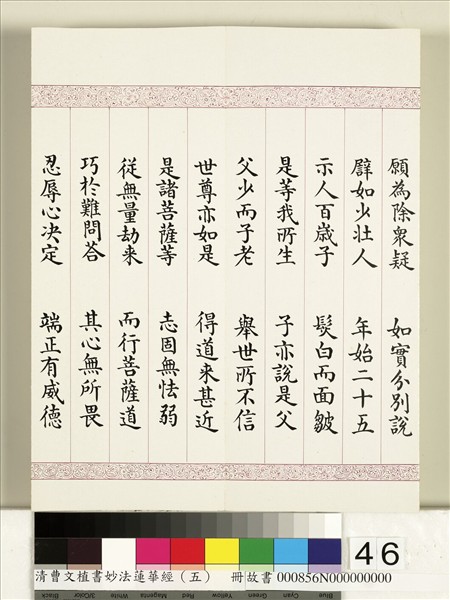 願為除衆疑 如實分別說
譬如少壯人 年始二十五
示人百歲子 髮白而面皺
是等我所生 子亦說是父
父少而子老 舉世所不信
世尊亦如是 得道來甚近
是諸菩薩等 志固無怯弱
從無量劫來 而行菩薩道
巧於難問答 其心無所畏
忍辱心決定 端正有威德
46
清曹文植書妙法蓮華經（五） 冊故書 000856N000000000
Black 3/Color White Magenta Red Yellow Green Cyan Blue